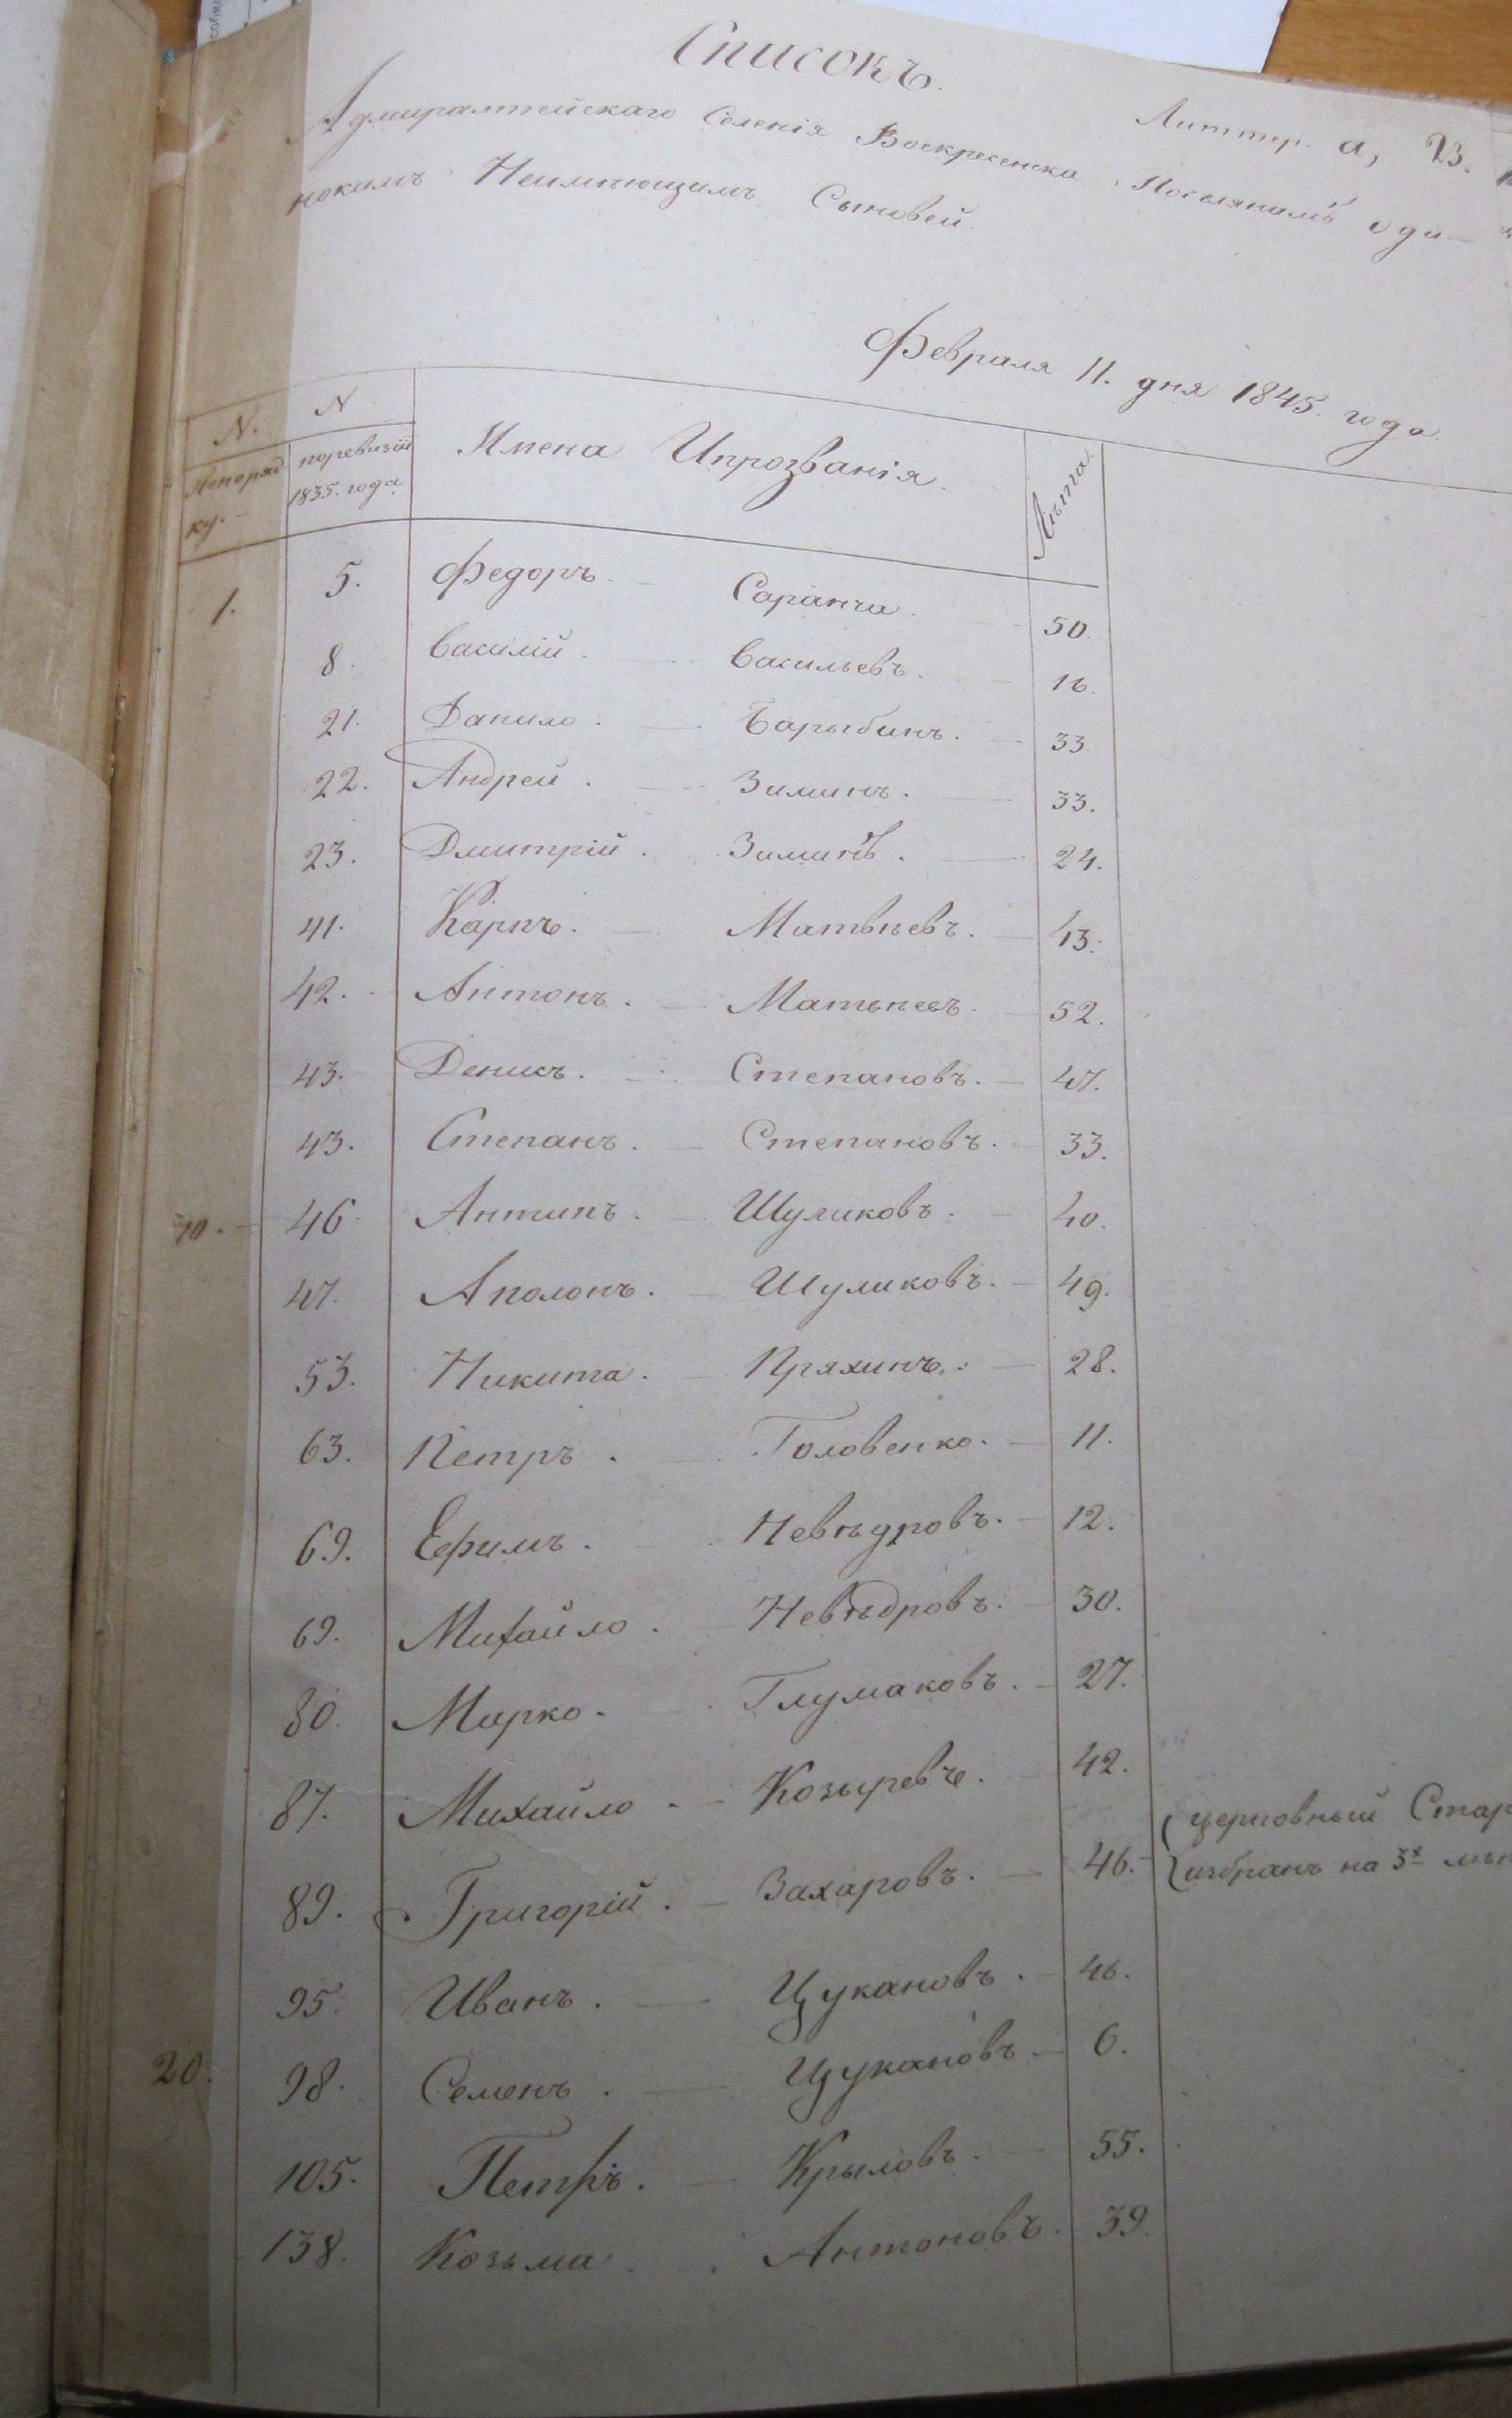 Списокъ.
Литтер. а, 23.
Адмиралтейскаго Селенія Воскресенска Поселянамъ оди-
нокимъ Неимѣющимъ Сыновей.
Февраля 11. дня 1845. года.
N. Попоряд ку. N поревизіи 1835. года Имена Ипрозванія. Лѣта.
1. 5. Федоръ. Саранча. 50.
8. Василій. Васильевъ. 16.
21. Данило. Барыбинъ. 33.
22. Андрей. Зиминъ. 33.
23. Дмитрій. Зиминъ. 24.
41. Карпъ. Матвѣевъ. 43.
42. Антонъ. Матвѣевъ. 52.
43. Денисъ. Степановъ. 47.
43. Степанъ. Степановъ. 33.
10. 46. Антипъ. Шуликовъ. 40.
47. Аполонъ. Шуликовъ. 49.
53. Никита. Пряхинъ. 28.
63. Петръ. Головенко. 11.
69. Ефимъ. Невѣдровъ. 12.
69. Михайло. Невѣдровъ. 30.
80. Марко. Глумаковъ. 27.
87. Михайло. Козыревъ. 42.
89. Григорій. Захаровъ. 46. церковный Стар
избранъ на 3х лѣт
95. Иванъ. Цукановъ. 46.
20. 98. Семенъ. Цукановъ. 6.
105. Петръ. Крыловъ. 55.
138. Козьма. Антоновъ. 39.